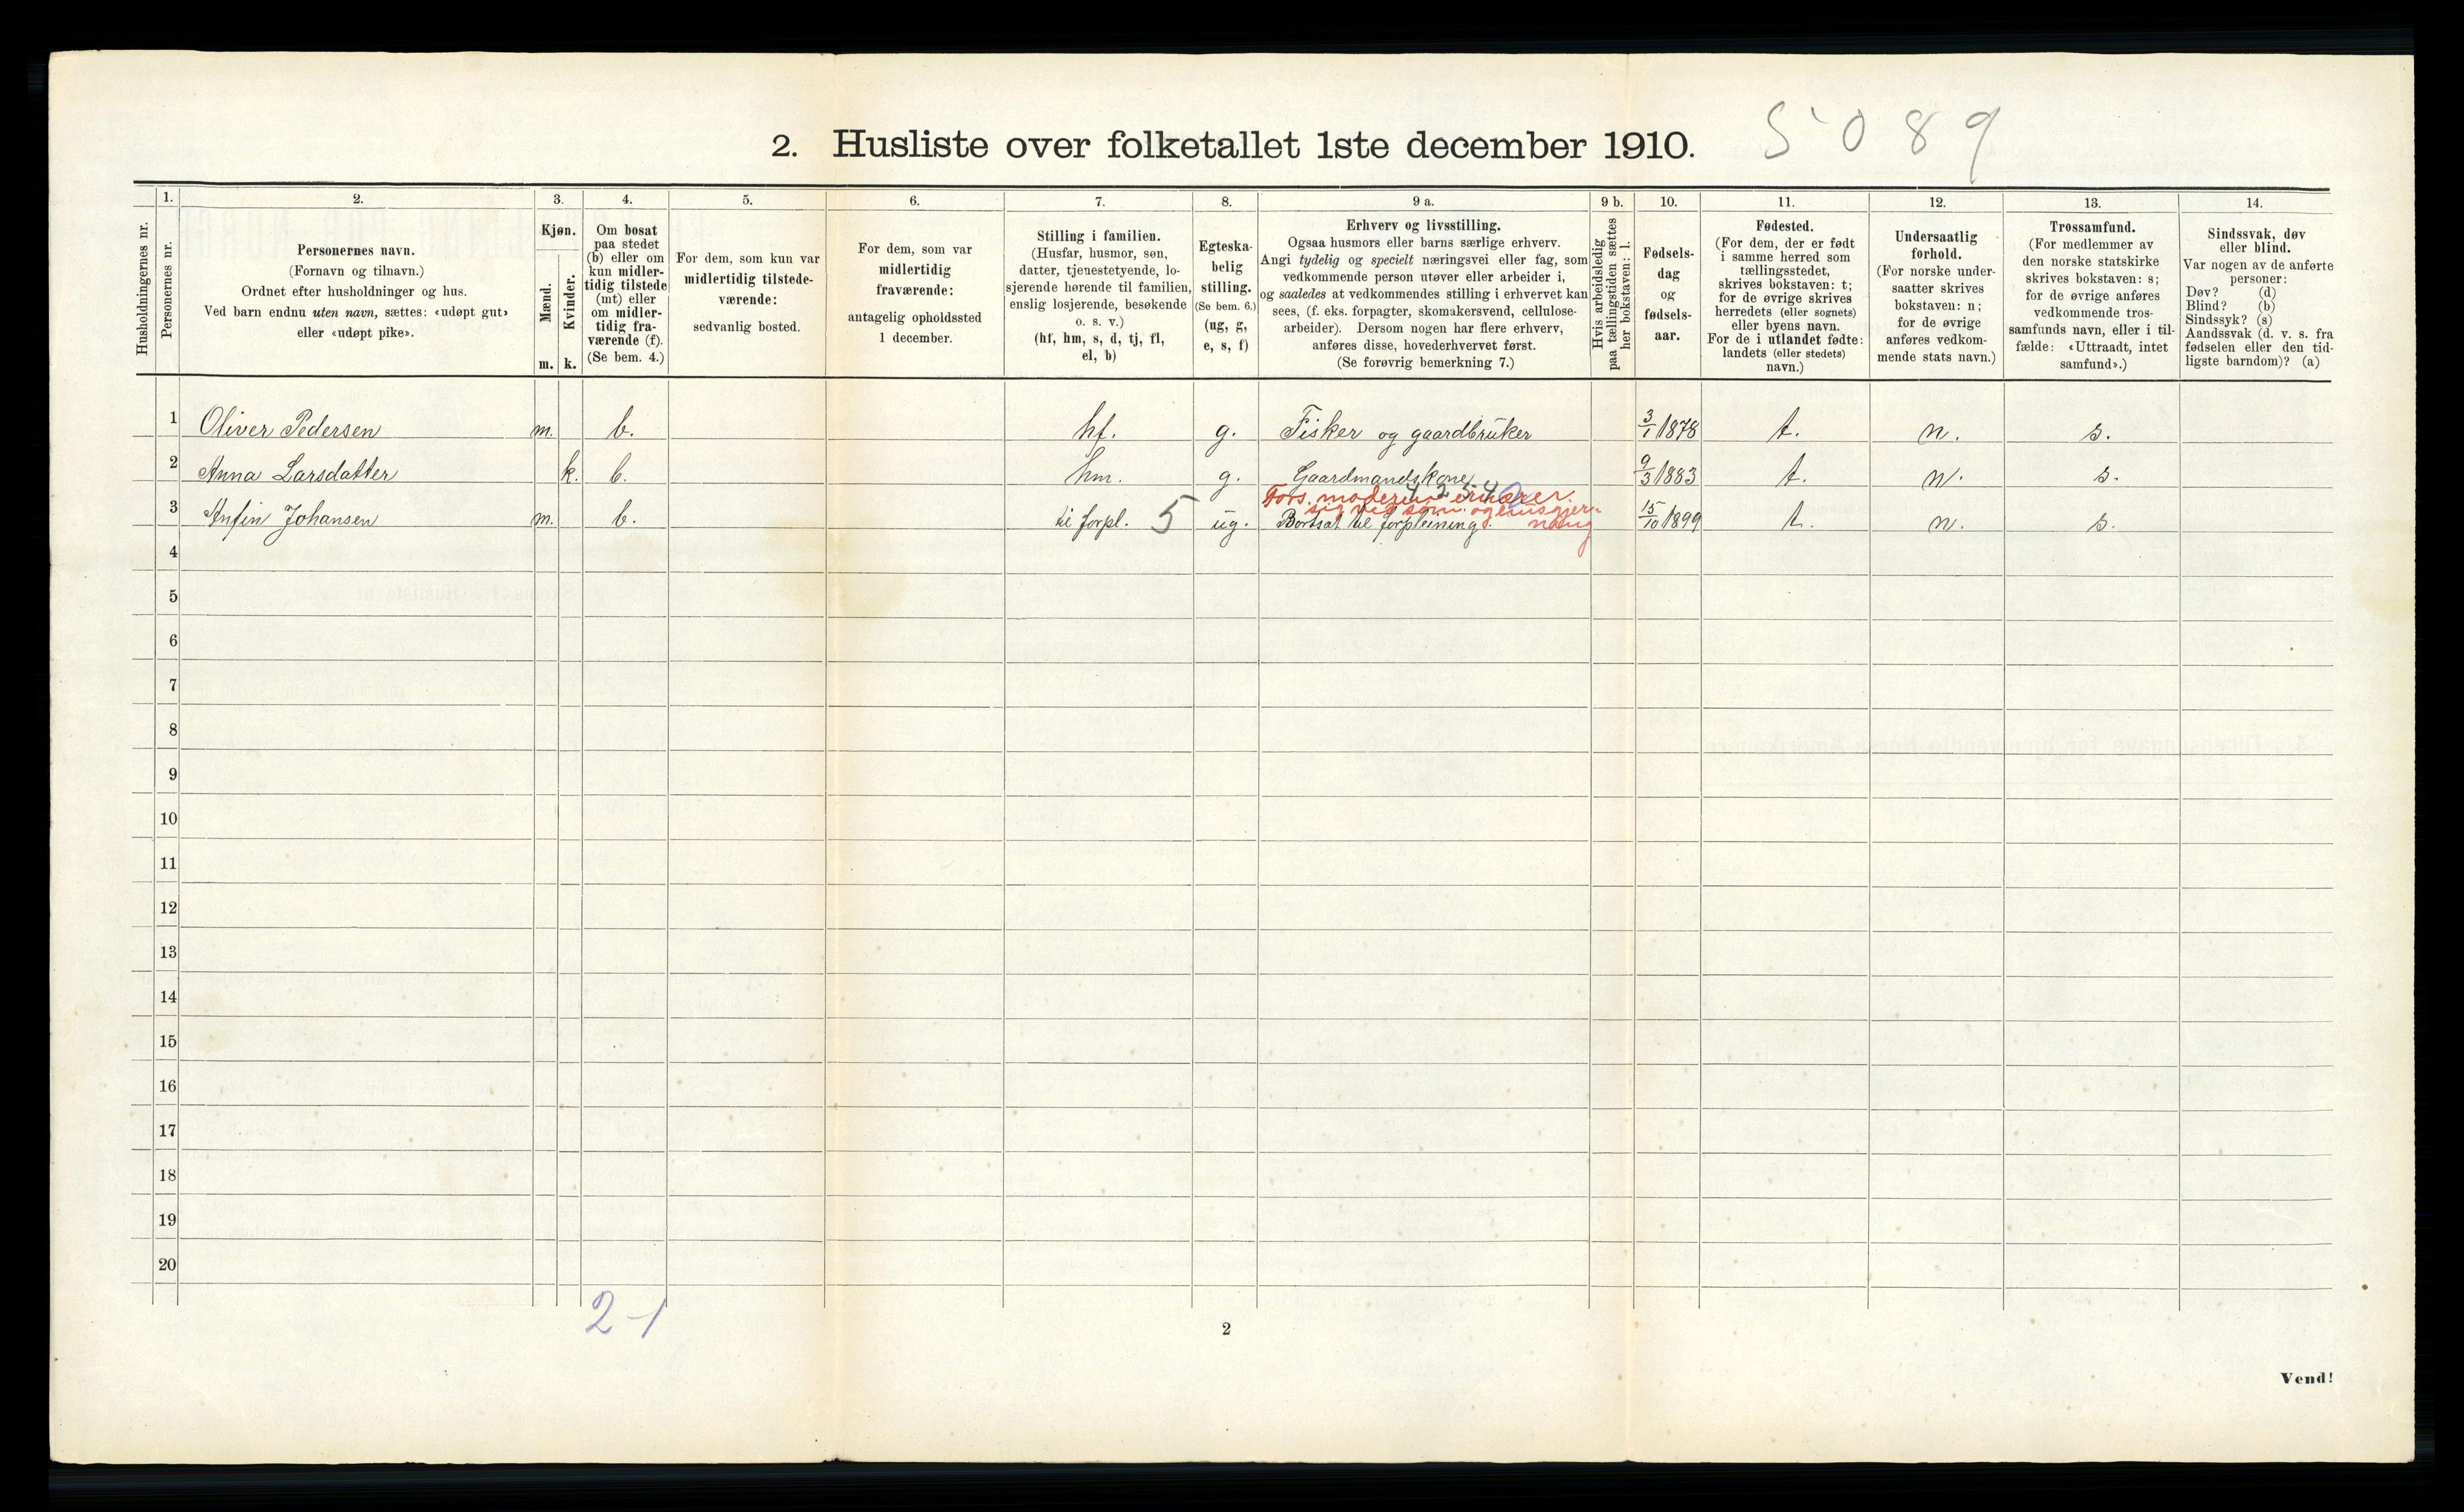 2. Husliste over folketallet 1ste december 1910. 5089
Husholdningernes nr.
1.
Personernes nr.
2.
Personernes navn.
(Fornavn og tilnavn.)
Ordnet efter husholdninger og hus.
Ved barn endnu uten navn, sættes: «udøpt gut»
eller «udøpt pike».
3.
Kjøn.
Mænd.
m.
Kvinder.
k.
4.
Om bosat
paa stedet
(b) eller om
kun midler-
tidig tilstede
(mt) eller
om midler-
tidig fra-
værende (f).
(Se bem. 4.)
5.
For dem, som kun var
midlertidig tilstede-
værende:
sedvanlig bosted.
6.
For dem, som var
midlertidig
fraværende:
antagelig opholdssted
1 december.
7.
Stilling i familien.
(Husfar, husmor, søn,
datter, tjenestetyende, lo-
sjerende hørende til familien,
enslig losjerende, besøkende
o. s. v.)
(hf, hm, s, d, tj, fl,
el, b)
8.
Egteska-
belig
stilling.
(Se bem. 6.)
(ug, g,
e, s, f)
9 a.
Erhverv og livsstilling.
Ogsaa husmors eller barns særlige erhverv.
Angi tydelig og specielt næringsvei eller fag, som
vedkommende person utøver eller arbeider i,
og saaledes at vedkommendes stilling i erhvervet kan
sees, (f. eks. forpagter, skomakersvend, cellulose-
arbeider). Dersom nogen har flere erhverv,
anføres disse, hovederhvervet først.
(Se forøvrig bemerkning 7.)
9 b.
Hvis arbeidsledig
paa tællingstiden sættes
her bokstaven: l.
10.
Fødsels-
dag
og
fødsels-
aar.
11.
Fødested.
(For dem, der er født
i samme herred som
tællingsstedet,
skrives bokstaven: t;
for de øvrige skrives
herredets (eller sognets)
eller byens navn.
For de i utlandet fødte:
landets (eller stedets)
navn.)
12.
Undersaatlig
forhold.
(For norske under-
saatter skrives
bokstaven: n;
for de øvrige
anføres vedkom-
mende stats navn.)
13.
Trossamfund.
(For medlemmer av
den norske statskirke
skrives bokstaven: s;
for de øvrige anføres
vedkommende tros-
samfunds navn, eller i til-
fælde: «Uttraadt, intet
samfund».)
14.
Sindssvak, døv
eller blind.
Var nogen av de anførte
personer:
Døv? (d)
Blind? (b)
Sindssyk? (s)
Aandssvak (d. v. s. fra
fødselen eller den tid-
ligste barndom)? (a)
1 Oliver Pedersen m. b. hf. g. Fisker og gaardbruker 3/1 1878 t. n. s.
2 Anna Larsdatter k. b. hm. g. Gaardmandskone 9/3 1883 t. n. s.
Fors. moderen ernærer
sig ved som. og husgjer-
ning
3 Anfin Johansen m. b. til forpl. 5 ug. Bortsat til forpleining. 15/10 1899 t. n. s.
4
5
6
7
8
9
10
11
12
13
14
15
16
17
18
19
20
2-1
2
Vend!